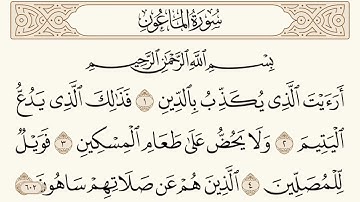 سُورَةُ المَاعُونِ
بِسْمِ اللَّهِ الرَّحْمَٰنِ الرَّحِيمِ
أَرَءَيْتَ الَّذِي يُكَذِّبُ بِالدِّينِ ١ فَذَٰلِكَ الَّذِي يَدُعُّ
الْيَتِيمَ ٢ وَلَا يَحُضُّ عَلَىٰ طَعَامِ الْمِسْكِينِ ٣ فَوَيْلٌ
لِّلْمُصَلِّينَ ٤ الَّذِينَ هُمْ عَن صَلَاتِهِمْ سَاهُونَ ٦٠٢